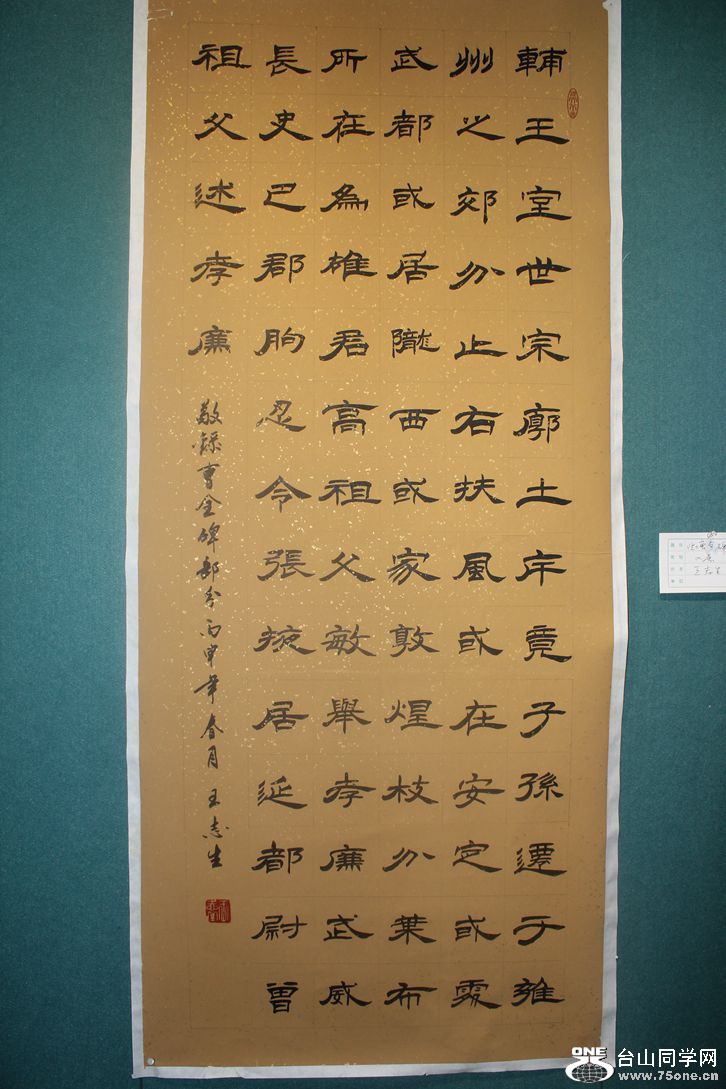 輔王室世宗廓土斥竟子孫遷于雍
州之郊分止右扶風或在安定或處
武都或居隴西或家敦煌枝分葉布
所在為雄君高祖父敏舉孝廉武威
長史巴郡朐忍令張掖居延都尉曾
祖父述孝廉
敬錄曹全碑部分丙申年春月王志生
ONE
台山同学网
www.75one.cn